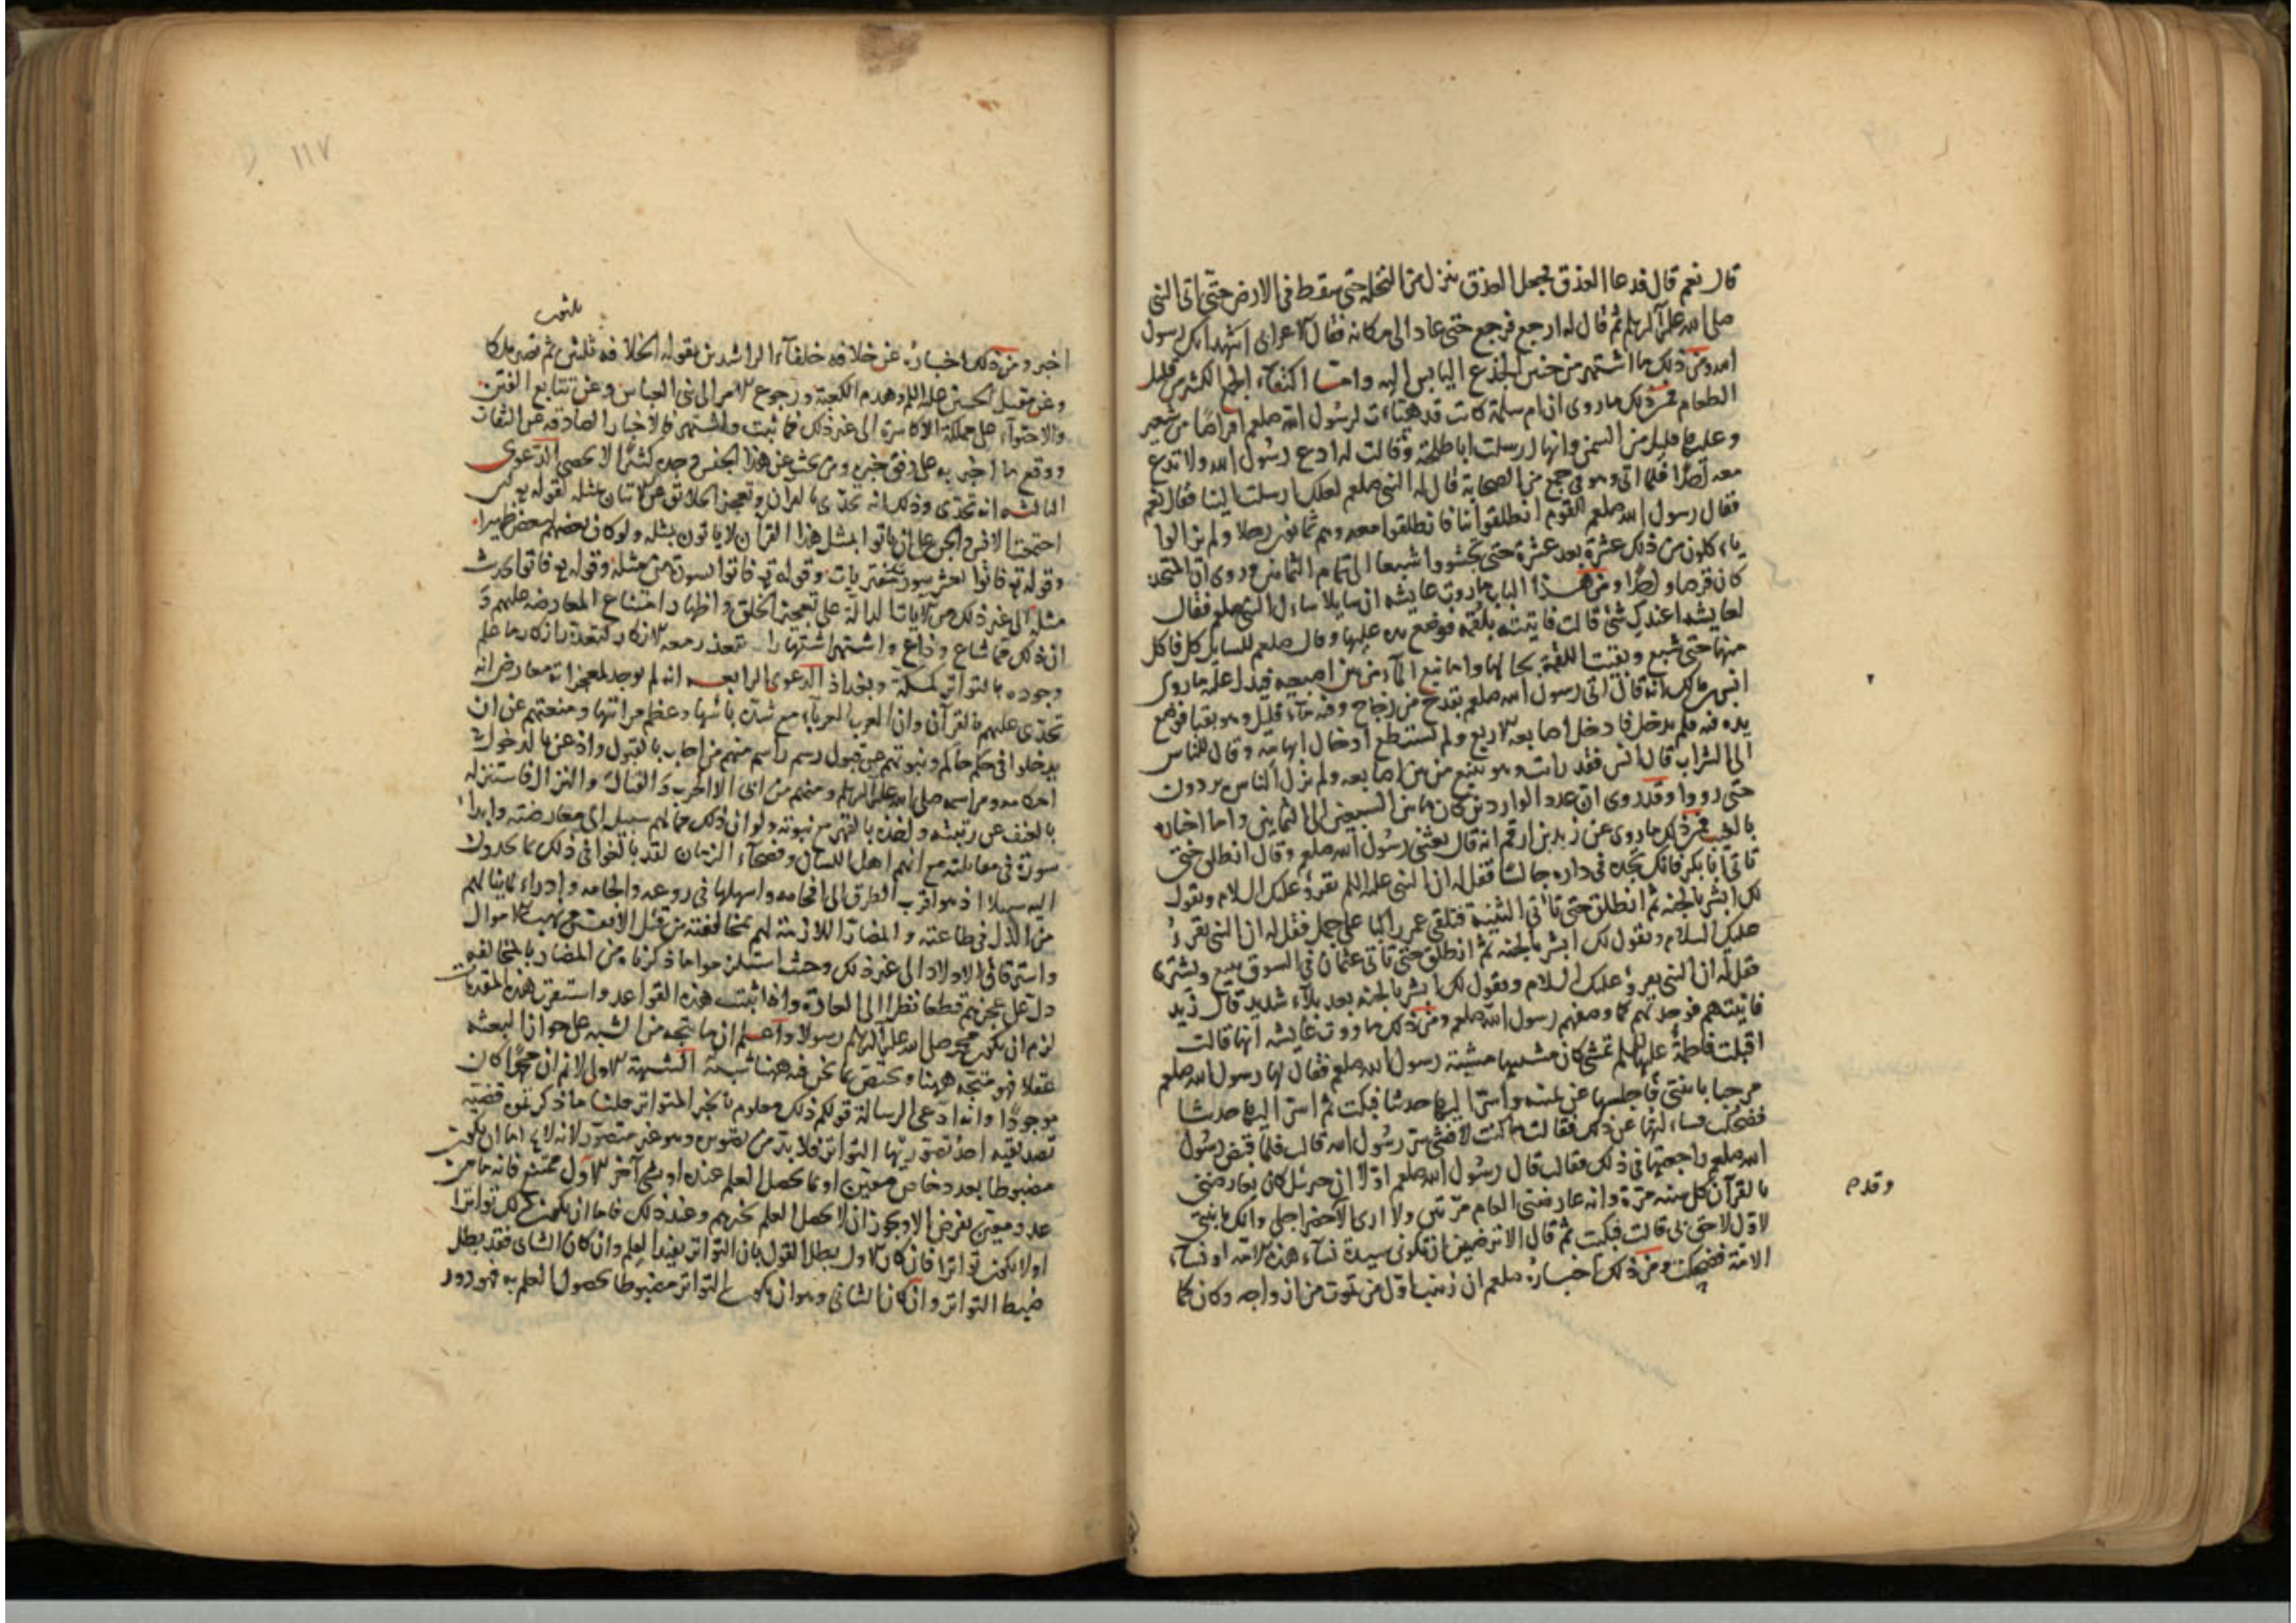 قال نعم قال فدعا العذق فجعل العذق ينزل من النخلة حتى سقط في الارض حتى اتى النبي
صلى الله عليه وآله وسلم ثم قال له ارجع فرجع حتى عاد الى مكانه فقال الاعرابي اشهد انك رسول
الله ومن ذلك ما اشتهر من حنين الجذع اليابس اليه واما اكتفاء الجمع الكثير من قليل
الطعام فمن ذلك ما روي ان ام سلمة كانت قد هيّأت لرسول الله صلعم اقراصًا من شعير
وعليها قليل من السمن وانها ارسلت ابا طلحة وقالت له ادع رسول الله ولا تدع
معه احدًا فلما اتى وهو في جمع من الصحابة قال له النبي صلعم لعلك ارسلت الينا فقال نعم
فقال رسول الله صلعم للقوم انطلقوا بنا فانطلقوا معه وهم ثمانون رجلا ولم يزالوا
يأكلون من ذلك عشرة بعد عشرة حتى تجشووا شبعا الى تمام الثمانين وروى ان المتحد
كان قرصا واحدًا ومن هذا الباب ما روت عايشه ان سايلا سأل النبي صلعم فقال
لعايشه اعندك شئ قالت فاتيته بلقمة فوضع يده عليها وقال صلعم للسايل كل فاكل
منها حتى شبع وبقيت اللقمة بحالها واما نبع الماء من بين اصبعيه فيدل عليه ما روى
انس بن مالك انه قال اتى رسول الله صلعم بقدح من زجاج وفيه ماء قليل وهو بقبا فوضع
يده فيه فلم يدخل فادخل اصابعه الاربع ولم يستطع ادخال ابهامه وقال للناس
الى الشراب قال انس فقد رأيت وهو ينبع من بين اصابعه ولم يزل الناس يردون
حتى رووا وقد روى ان عدد الواردين كان ما بين السبعين الى الثمانين واما اخباره
بالغيب فمن ذلك ما روى عن زيد بن ارقم انه قال بعثني رسول الله صلعم وقال انطلق حتى
تاتي ابا بكر فانك تجده في داره جالسًا فقل له ان النبي عليه السلم يقرؤ عليك السلام ويقول
لك ابشر بالجنه ثم انطلق حتى تأتي الثنية فتلقى عمر راكبا على جمل فقل له ان النبي يقرؤ
عليك السلام ويقول لك ابشر بالجنه ثم انطلق حتى تاتي عثمان في السوق يبيع ويشترى
فقل له ان النبي يقرؤ عليك السلام ويقول لك ابشر بالجنه بعد بلاء شديد قال زيد
فاتيتهم فوجدتهم كما وصفهم رسول الله صلعم ومن ذلك ما روت عايشه انها قالت
اقبلت فاطمة عليها السلم تمشي كان مشيتها مشية رسول الله صلعم فقال لها رسول الله صلعم
مرحبا بابنتي فاجلسها عن يمينه واسرّ اليها حديثا فبكت ثم اسرّ اليها حديثا
فضحكت فسألتها عن ذلك فقالت ما كنت لافشي سرّ رسول الله قالت فلما قبض رسول
الله صلعم راجعتها في ذلك فقالت قال رسول الله صلعم اوّلا ان جبرئيل كان يعارضني
بالقرآن كل سنه مرّة وانه عارضني العام مرّتين ولا ارى الا حضر اجلي وانك يا بنتي
لاوّل لاحق بي قالت فبكت ثم قال الا ترضين ان تكوني سيدة نساء هذه الامّة او نساء
الامّة فضحكت ومن ذلك اخباره صلعم ان زينب اوّل من تموت من ازواجه وكان كما
وقدم
١١٧
اخبر ومن ذلك اخباره عن خلافة خلفاء الراشدين بقوله الخلافه ثلثون ثم تصير ملكا
وعن مقتل الحسين عليه السلم وهدم الكعبة ورجوع الامر الى بني العباس وعن تتابع الفتن
والاحتواء على مملكة الاكاسرة الى غير ذلك مما ثبت واشتهر بالاخبار الصادقه عن الثقات
ووقع ما اخبر به على وفق خبره ومن بحث عن هذا الجنس وجده كثيرًا لا يحصى الدعوى
الثالثة انه تحدّى وذلك انه تحدّى بالقران وتعجيز الخلائق عن الاتيان بمثله لقوله تع لئن
اجتمعت الانس والجن على ان ياتوا بمثل هذا القرآن لا ياتون بمثله ولو كان بعضهم لبعض ظهيرا
وقوله تع فاتوا بعشر سور مثله مفتريات وقوله تع فاتوا بسورة من مثله وقوله تع فاتوا بحديث
مثله الى غير ذلك من الآيات الدالة على تعجيز الخلق واظهار امتناع المعارضه عليهم و
ان ذلك مما شاع وذاع واشتهر اشتهارا يتعذر معه الانكار لتعذر انكار ما علم
وجوده بالتواتر كمكة وبغداد الدعوى الرابعه انه لم يوجد لمعجزاته معارض انه
تحدى عليهم بالقرآن وان العرب العرباء مع شدّة بأسها وعظم مراسها ومنعتهم عن ان
يدخلوا في حكم حاكم ونبوتهم عن قبول رسم راسم منهم من اجاب بالقبول واذعن بالدخول في
احكامه ومراسمه صلى الله عليه وآله وسلم ومنهم من ابى الا الحرب والقتال والنزال فاستنزله
بالعنف عن رتبته واخذه بالقهر مع نبوته ولو ان ذلك مما لهم سبيل الى معارضته وابداء
سورة في مقابلته مع انهم اهل اللسان وفصحاء الزمان لقد بالغوا في ذلك بما يجدون
اليه سبيلا اذ هو اقرب الطرق الى افحامه واسهلها في روعه والجامه وادراء ما ينالهم
من الذل في طاعته والمضارّ اللازمة لهم بمخالفته من قتل الانفس ونهب الاموال
واسترقاق الاولاد الى غير ذلك وحيث استلزموا ما ذكرناه من المضار بالمخالفه
دل على عجزهم قطعا نظرا الى العادة واذا ثبتت هذه القواعد واستقرت هذه المقدمات
لزم ان يكون محمد صلى الله عليه وآله وسلم رسولا واعلم ان ما يتجه من الشبه على جواز البعثه
عقلا فهو متجّه ههنا ويختص بما نحن فيه ههنا شبه الشبهة الاولى لانم ان محمدًا كان
موجودًا وانه ادعى الرسالة قولكم ذلك معلوم بالخبر المتواتر قلنا ما ذكرتموه قضيّه
تصديقيه احد تصوريها التواتر فلا بد من تصوره وهو غير متصوّر لانه لا يخ اما ان يكون
مضبوطا بعدد خاص معيّن او بما يحصل العلم عنده او بشي آخر الاول ممتنع فانه ما من
عدد معيّن يفرض الا ويجوز ان لا يحصل العلم بخبرهم وعند ذلك فاما ان يكون ذلك تواترا
او لا يكون تواترا فان كان الاول بطل القول بان التواتر يفيد العلم وان كان الثاني فقد بطل
ضبط التواتر وان كان الثاني وهو ان يكون التواتر مضبوطا بحصول العلم به فهو دور